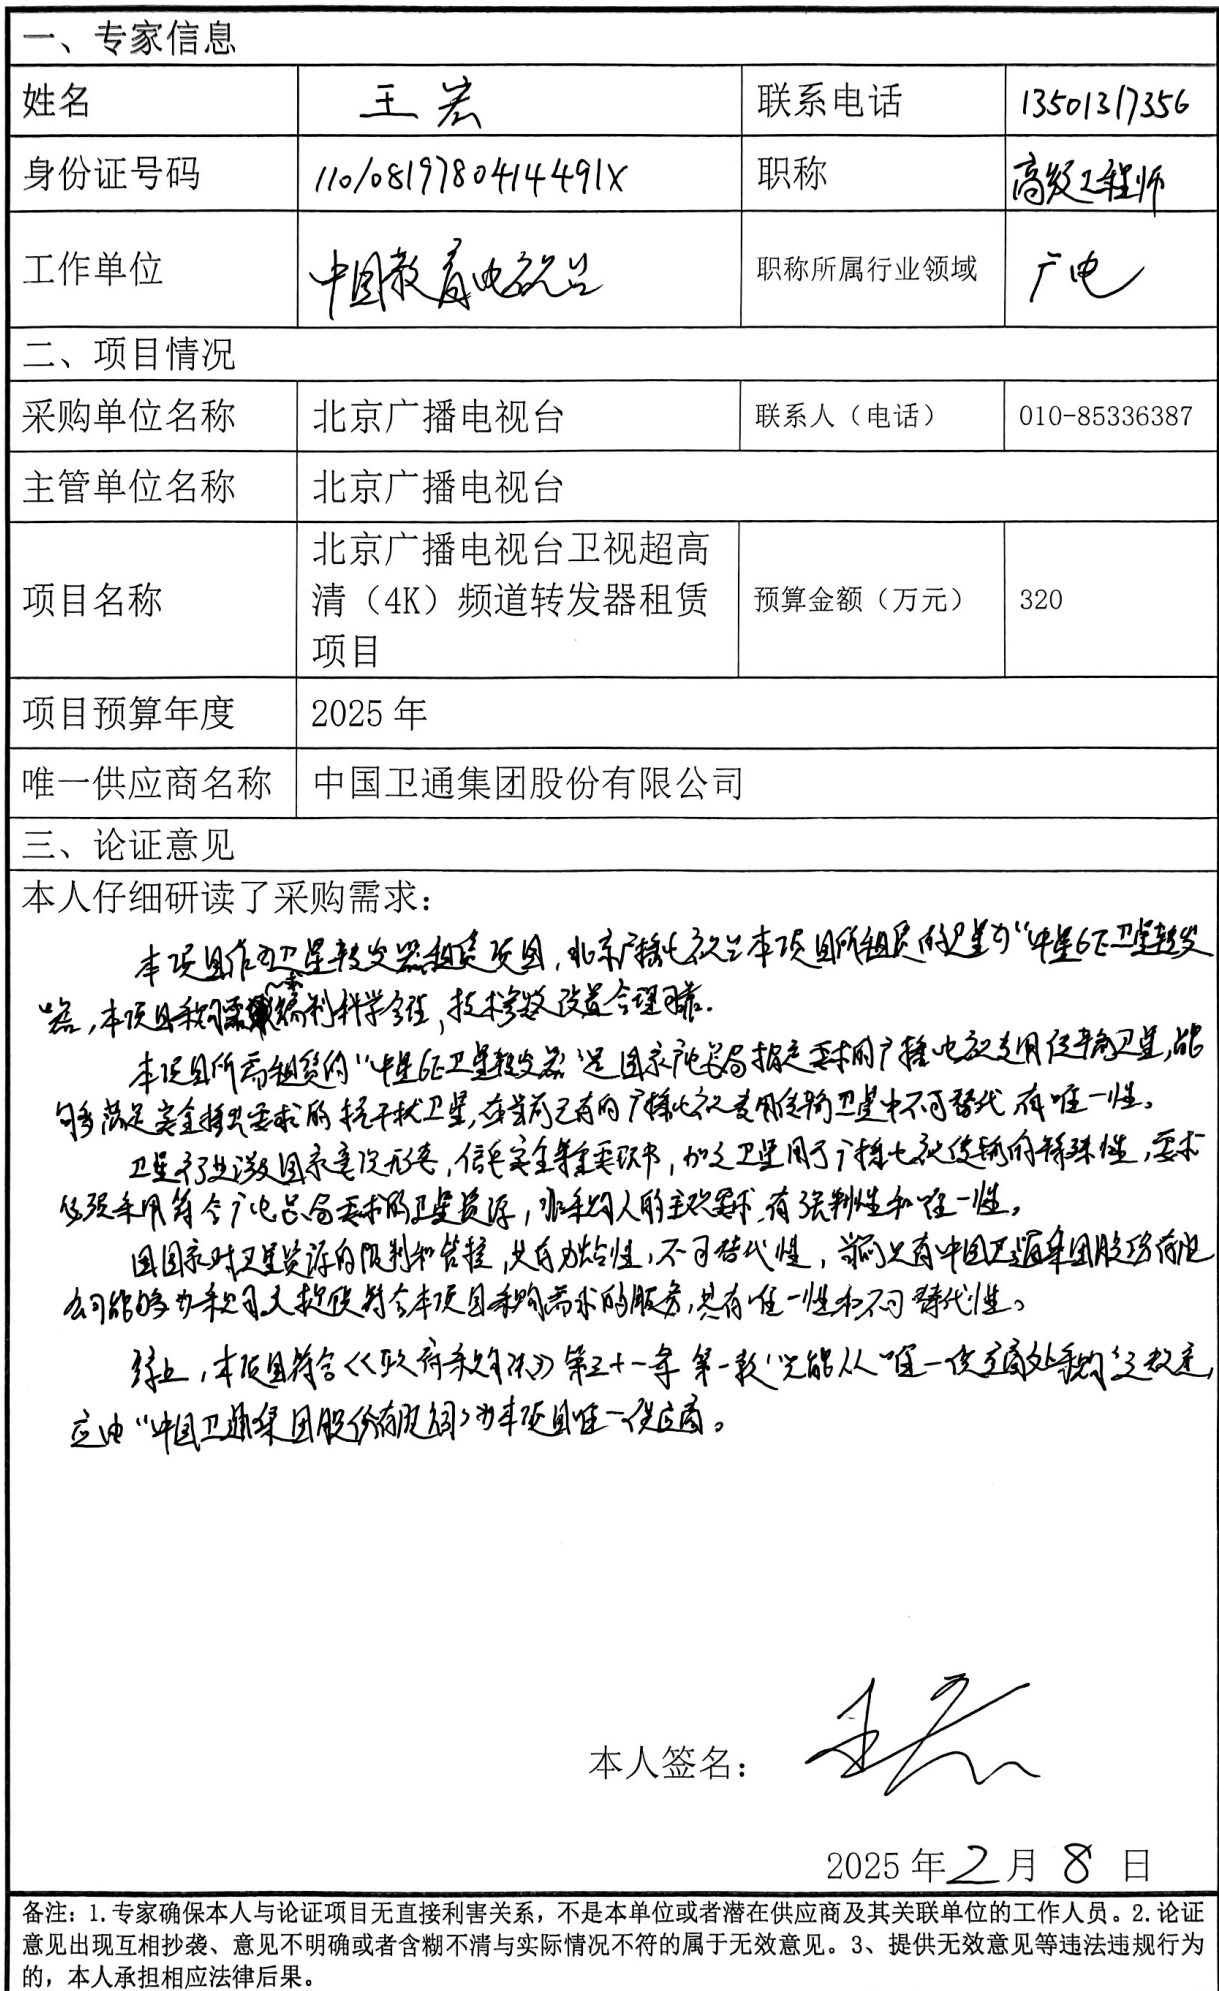 一、专家信息
姓名 王宏 联系电话 13501317356
身份证号码 11010819780414491X 职称 高级工程师
工作单位 中国教育电视台 职称所属行业领域 广电
二、项目情况
采购单位名称 北京广播电视台 联系人（电话） 010-85336387
主管单位名称 北京广播电视台
北京广播电视台卫视超高
项目名称 清（4K）频道转发器租赁 预算金额（万元） 320
项目
项目预算年度 2025 年
唯一供应商名称 中国卫通集团股份有限公司
三、论证意见
本人仔细研读了采购需求：
本项目作为卫星转发器租赁项目，北京广播电视台本项目所租赁的卫星为“中星6E卫星转发
器，本项目采购需求编制科学合理，技术参数设置合理可靠.
本项目所需租赁的“中星6E卫星转发器”是国家广电总局指定要求的广播电视专用传输卫星，能
够满足安全播出要求的抗干扰卫星，在当前已有的广播电视专用传输卫星中不可替代 有唯一性。
卫星行业涉及国家意识形态，信息安全等重要职责，加之卫星用于广播电视传输的特殊性，要求
必须采用符合广电总局要求的卫星资源，非采购人的主观要求，有强制性和唯一性。
因国家对卫星资源的限制和管控，具有功能性，不可替代性，当前只有中国卫通集团股份有限
公司能够为采购人提供符合本项目采购需求的服务，具有唯一性和不可替代性。
综上，本项目符合《政府采购法》第三十一条 第一款“只能从唯一供应商处采购”之规定，
应由“中国卫通集团股份有限公司”为本项目唯一供应商。
本人签名： 王宏
2025 年 2 月 8 日
备注：1.专家确保本人与论证项目无直接利害关系，不是本单位或者潜在供应商及其关联单位的工作人员。2.论证
意见出现互相抄袭、意见不明确或者含糊不清与实际情况不符的属于无效意见。3、提供无效意见等违法违规行为
的，本人承担相应法律后果。